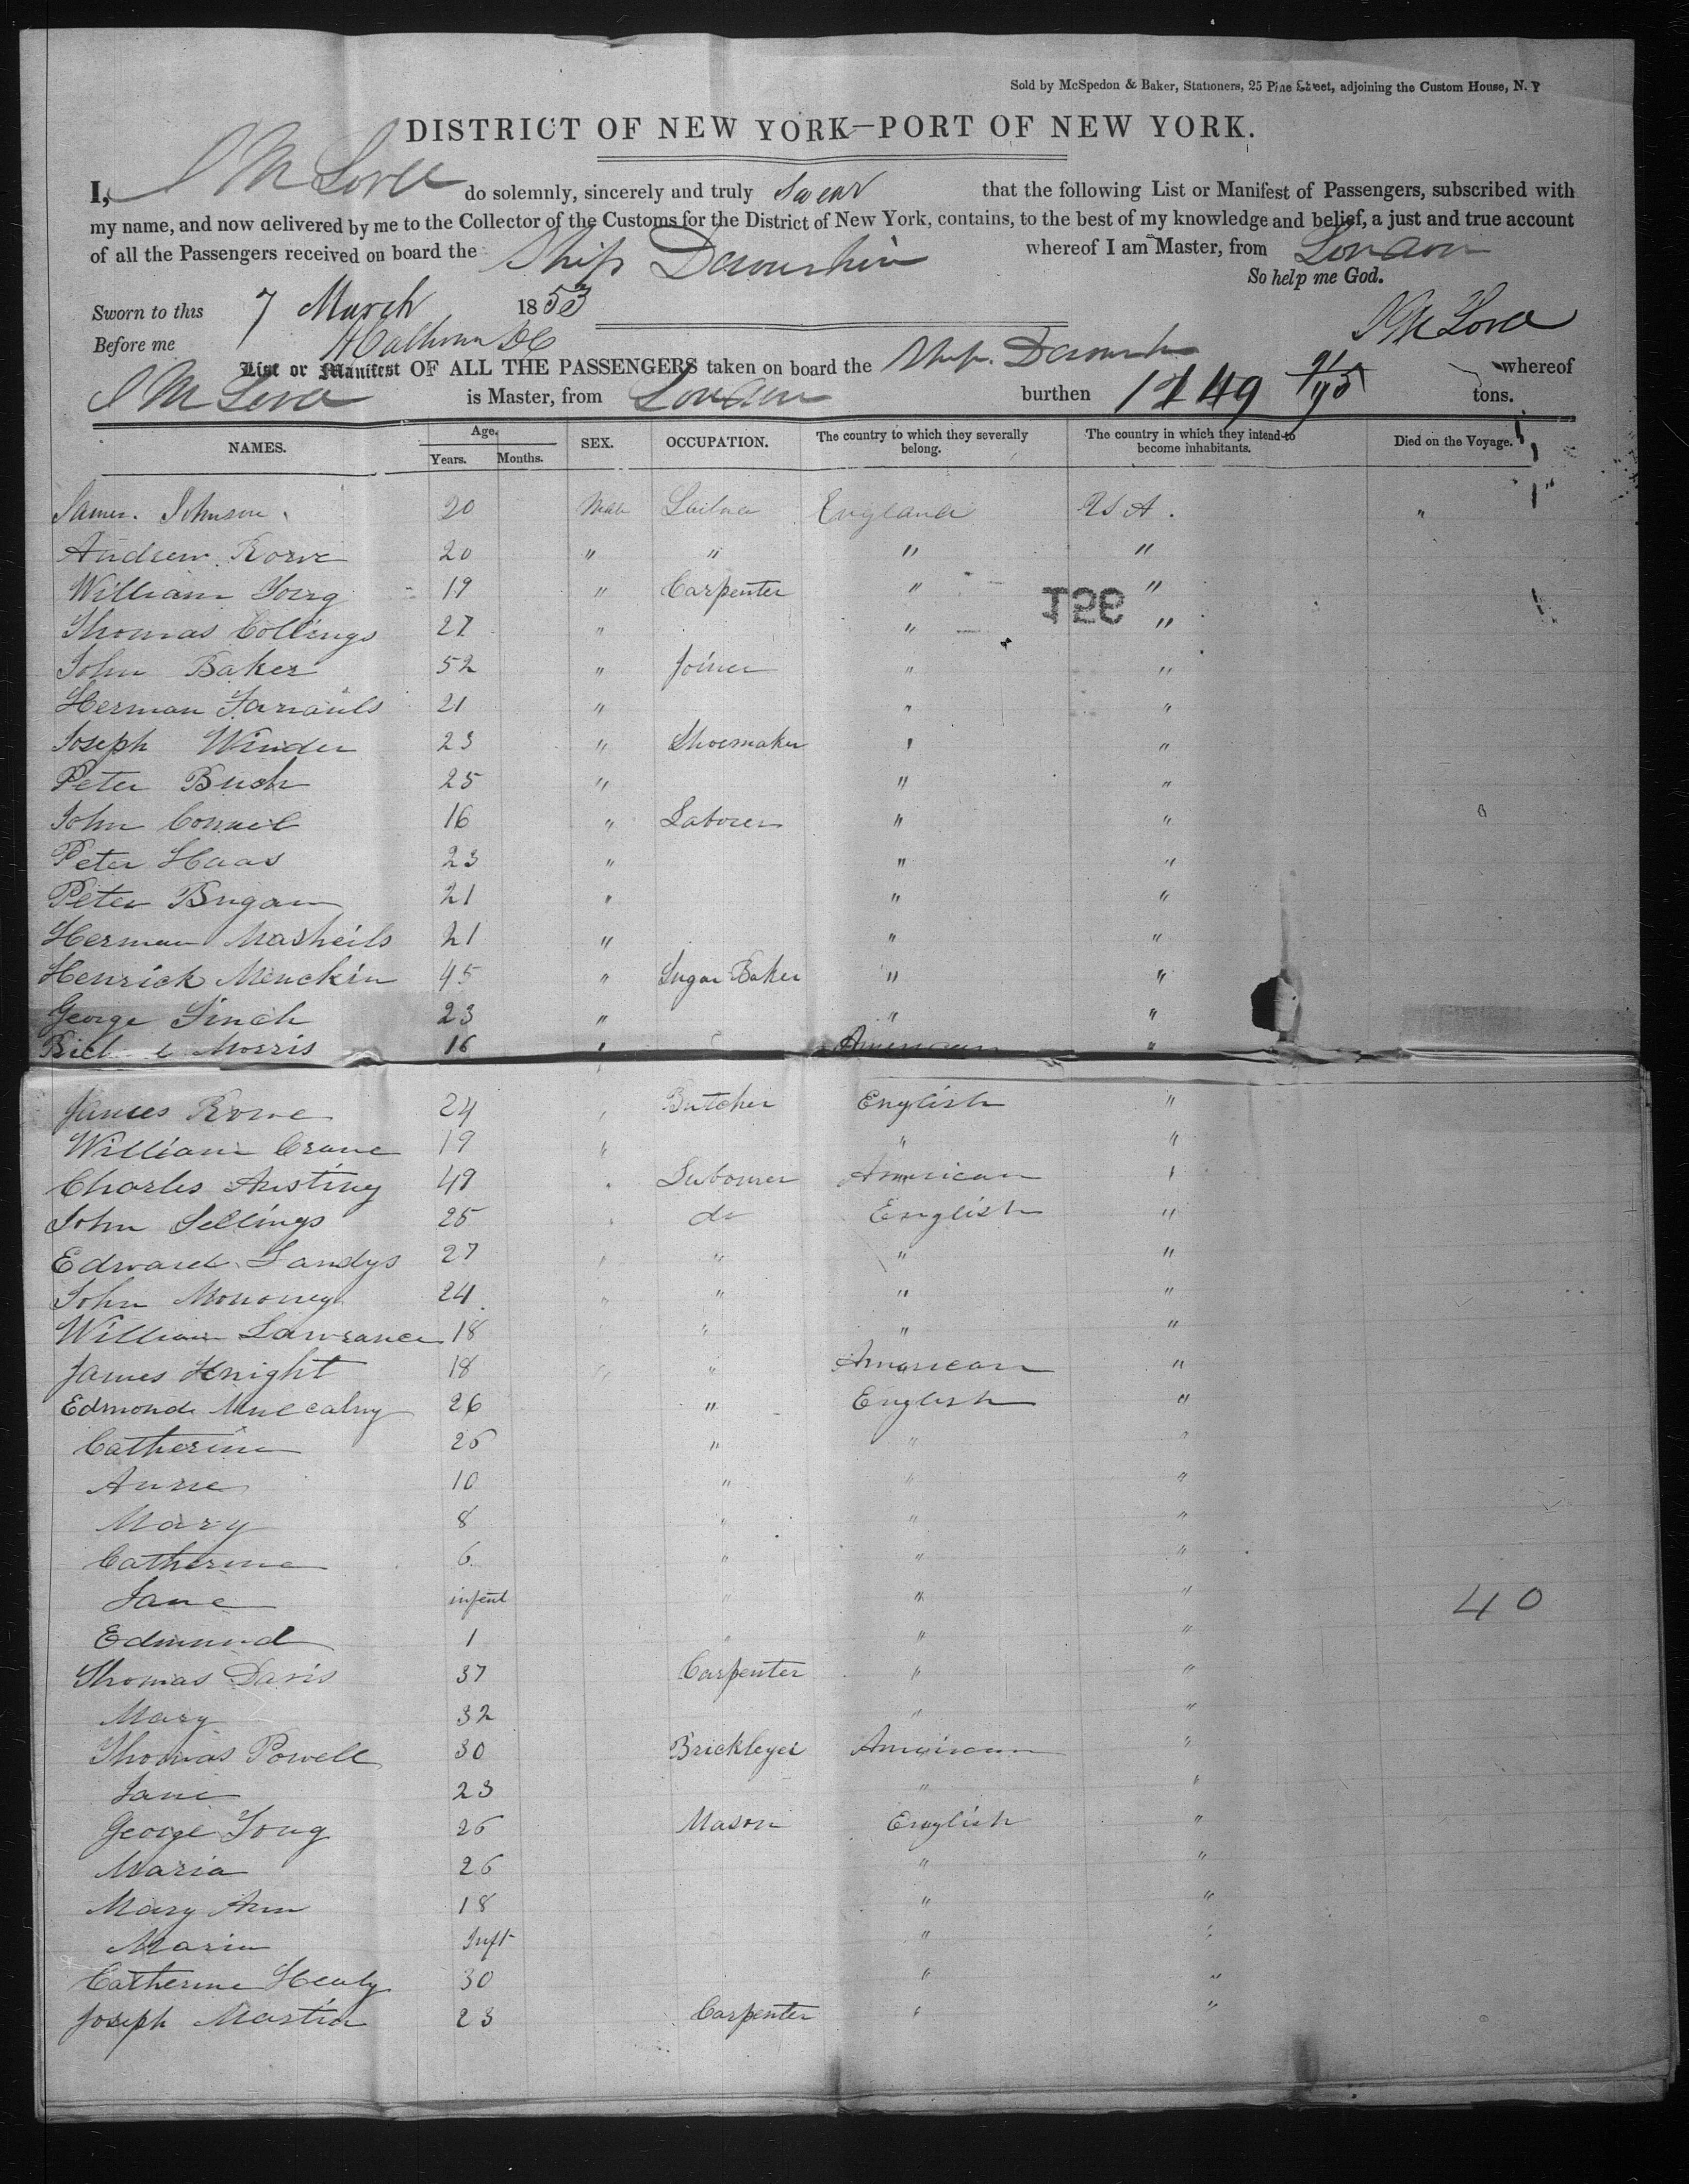 Sold by McSpedon & Baker, Stationers, 25 Pine Street, adjoining the Custom House, N. Y
DISTRICT OF NEW YORK—PORT OF NEW YORK.
I, do solemnly, sincerely and truly Swear that the following List or Manifest of Passengers, subscribed with
my name, and now delivered by me to the Collector of the Customs for the District of New York, contains, to the best of my knowledge and belief, a just and true account
of all the Passengers received on board the Ship Devonshire whereof I am Master, from London
So help me God.
Sworn to this 7 March 1853
Before me
List or Manifest OF ALL THE PASSENGERS taken on board the Ship whereof
is Master, from London burthen 1149 tons.
NAMES. Age. Years. Months. SEX. OCCUPATION. The country to which they severally belong. The country in which they intend to become inhabitants. Died on the Voyage.
James Johnson 20 Male England U S A. "
Andrew Rowe 20 " " " "
William Yong 19 " Carpenter " "
Thomas Collings 27 " " "
John Baker 52 " Joiner " "
Herman 21 " " "
Joseph Winder 23 " Shoemaker " "
Peter Bush 25 " " "
John Connel 16 " Laborer " "
Peter Haas 23 " " "
Peter 21 " " "
Herman Masheils 21 " " "
Henrick Menckin 45 " Sugar Baker " "
George Finch 23 " " "
Morris 16 " American "
James Rowe 24 " Butcher English "
William Crane 19 " " "
Charles Austing 49 " Labourer American "
John Sellings 25 " do English "
Edward Sandys 27 " " " "
John Mononey 24 " " " "
William Lawrance 18 " " "
James Knight 18 " " American "
Edmond Mulcalny 26 " English "
Catherine 26 " " "
Anne 10 " " "
Mary 8 " " "
Catherine 6 " " "
Jane infent " " "
40
Edmund 1 " " "
Thomas Davis 37 Carpenter " "
Mary 32 " "
Thomas Powell 30 Brickleyer American "
Jane 23 " "
George Yong 26 Mason English "
Maria 26 " "
Mary Ann 18 " "
Maria Inft " "
Catherine Healy 30 " "
Joseph Martin 23 Carpenter " "